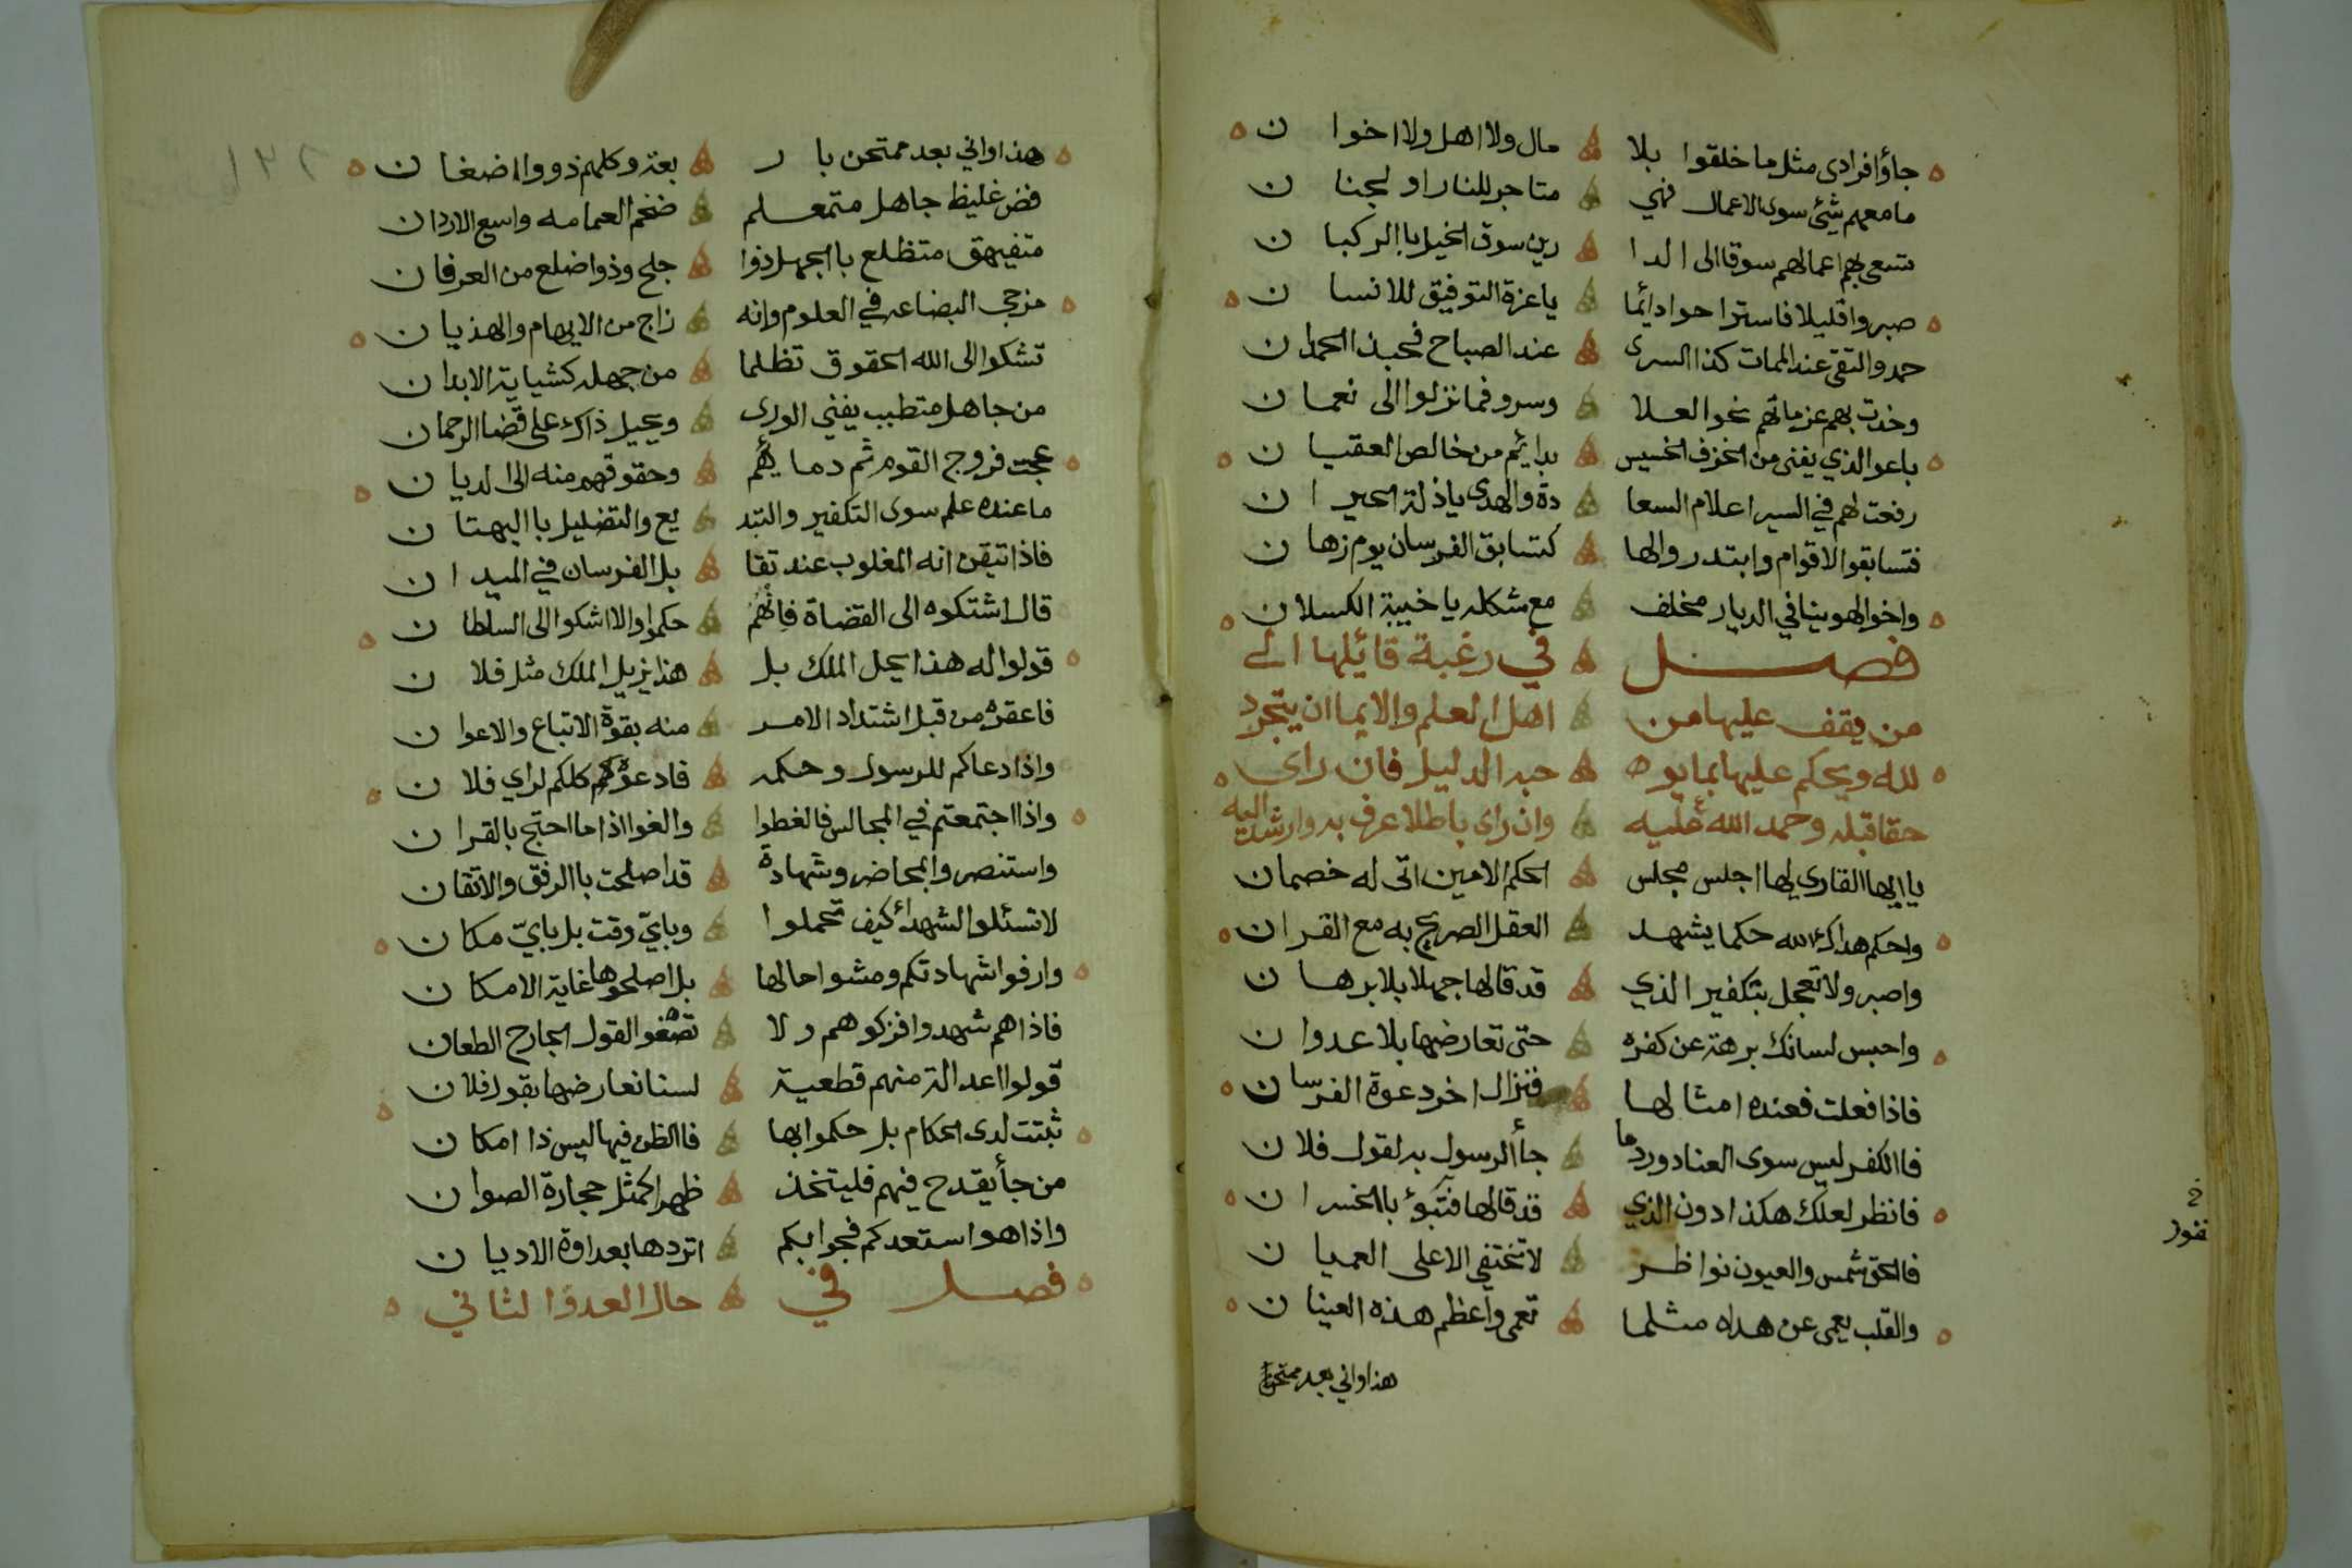 جاؤا فرادى مثل ما خلقوا بلا مال ولا اهل ولا اخوا ن
ما معهم شيئ سوى الاعمال فهي متاجر للنار او لجنا ن
تسعى بهم اعمالهم سوقا الى الدا رين سوق الخيل باالركبا ن
صبروا قليلا فاستراحوا دائما يا عزة التوفيق للانسا ن
حمدوا التقى عند الممات كذا السرى عند الصباح فحبذا الحمدان
وخدت بهم عزماتهم نحو العلا وسروا فما نزلوا الى نعما ن
باعوا الذي يفنى من الخزف الخسيس بدائم من خالص العقيا ن
رفعت لهم في السير اعلام السعا دة والهدى يا ذلة الحيرا ن
فتسابقوا الاقوام وابتدروا لها كتسابق الفرسان يوم رها ن
واخو الهوينا في الديار مخلف مع شكله يا خيبة الكسلان
فصل في رغبة قائلها الى
من يقف عليها من اهل العلم والايماان يتجرد
لله ويحكم عليها بما يو حبه الدليل فان راى
حقا قبله وحمد الله عليه وان راى باطلا عرف به وارشد اليه
يا ايها القاري لها اجلس مجلس الحكم الامين اتى له خصمان
واحكم هداك الله حكما يشهد العقل الصريح به مع القران
واصبر ولا تعجل بتكفير الذي قد قالها جهلا بلا برها ن
واحبس لسانك برهة عن كفره حتى تعارضها بلا عدوا ن
فاذا فعلت فعنده امثالها فنزال اخر دعوة الفرسان
فاالكفر ليس سوى العناد ورد ما جأ الرسول به لقول فلا ن
فانظر لعلك هكذا دون الذي قد قالها فتبوء باالخسرا ن
فالحق شمس والعيون نواظر لا تختفي الا على العميا ن
والقلب يعمى عن هداه مثلما تعمى واعظم هذه العينا ن
هذا واني بعد ممتحن
فنور
هذا واني بعد ممتحن با ر بعة وكلهم ذووا اضغا ن
فض غليظ جاهل متمعلم ضخم العمامه واسع الاردان
متفيهق متظلع باالجهل ذوا جلح وذوا ضلع من العرفان
مزجى البضاعه في العلوم وانه زاج من الايهام والهذيان
تشكوا الى الله الحقوق تظلما من جهله كشكاية الابدان
من جاهل متطبب يفني الورى ويحيل ذاك على قضا الرحمان
عجت فروج القوم ثم دمايهم وحقوقهم منه الى الديا ن
ما عنده علم سوى التكفير والتبد يع والتضليل باالبهتا ن
فاذا تيقن انه المغلوب عند تقا بل الفرسان في الميدا ن
قال اشتكوه الى القضاة فانهم حكموا والا اشكوا الى السلطا ن
قولوا له هذا يحل الملك بل هذا يزيل الملك مثل فلا ن
فاعقره من قبل اشتداد الامر منه بقوة الاتباع والاعوا ن
واذا دعاكم للرسول وحكمه فادعوكم كلكم لراي فلا ن
واذا اجتمعتم في المجالس فالغطوا والغوا اذا ما احتج بالقرا ن
واستنصروا بمحاضر وشهادة قد اصلحت باالرفق والاتقان
لا تسئلوا الشهدأ كيف تحملوا وباي وقت بل باي مكا ن
وارفوا شهادتكم ومشوا حالها بل اصلحوها غاية الامكا ن
فاذا هم شهدوا فزكوهم ولا تصغوا لقول الجارح الطعان
قولوا اعدالة منهم قطعية لسنا نعارضها بقول فلان
ثبتت لدى الحكام بل حكموا بها فاالظن فيها ليس ذا امكا ن
من جأ يقدح فيهم فليتخذ ظهرا كمثل حجارة الصوا ن
واذا هوا ستعدكم فجوابكم اتردها بعداوة الاديا ن
فصل في حال العدو الثاني